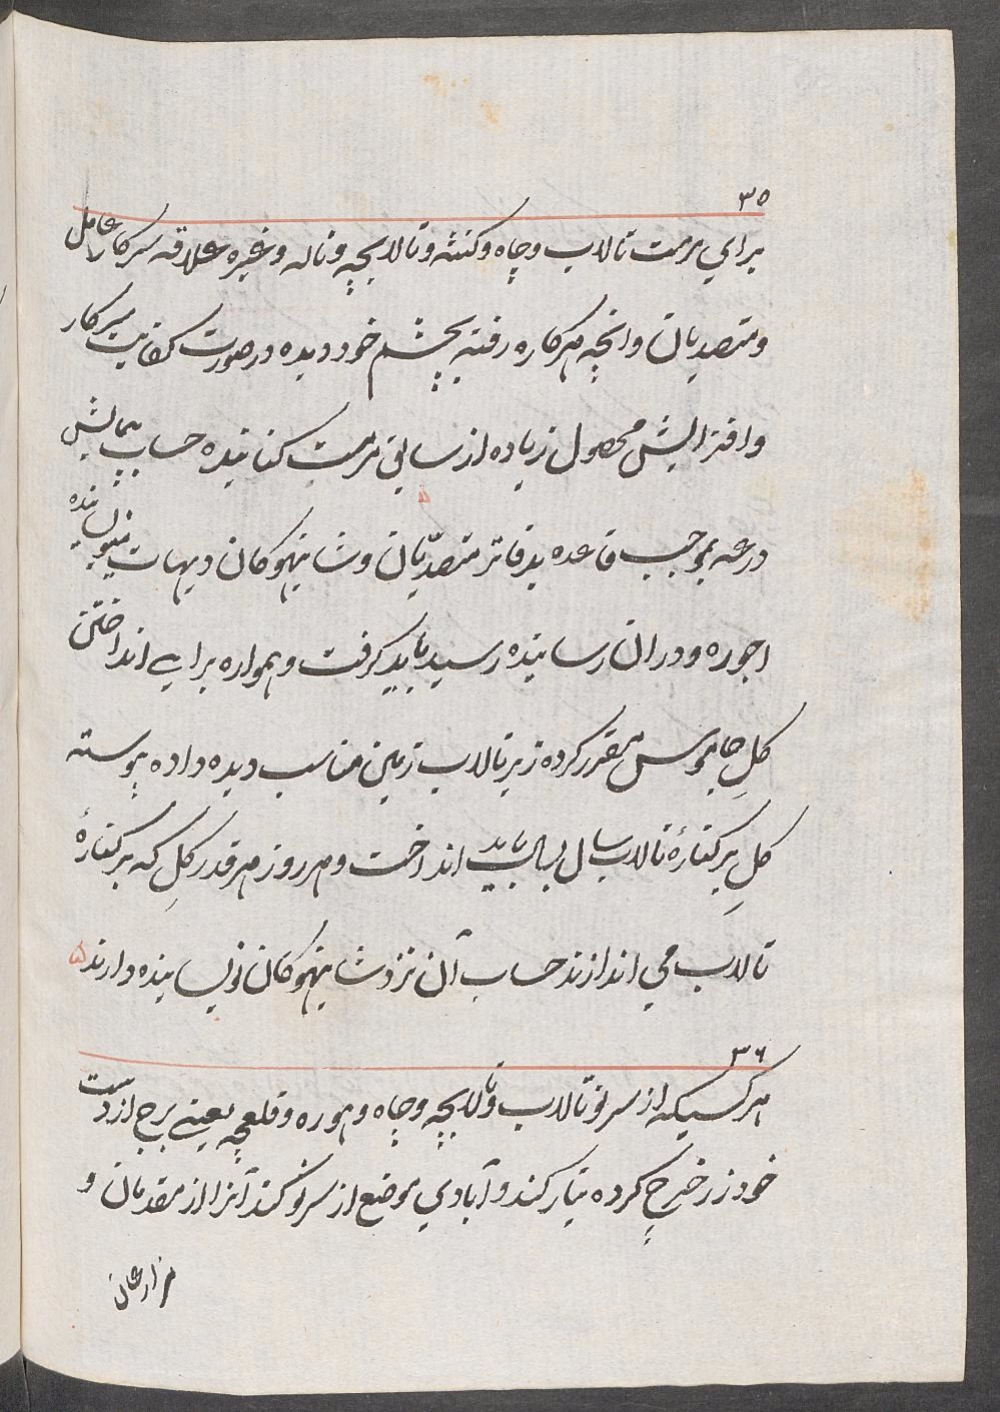 ۳۵
براي مرمت تالاب وچاه وكنثه وتالابچه وناله وغيره علاقه سركار عامل
ومتصديان وانچه هركاره رفته بچشم خود ديده درصورت كفايت سركار
وافزايش محصول زياده از سابق مرمت كنانيده حساب پيمايش
درعه بموجب قاعده بدفاتر متصدّيان وشانبهوكان ديهات نويسانيده
اجوره ودران رسانيده رسيد بايد گرفت وهمواره براي انداختن
گلِ جاموس مقرر كرده زير تالاب زمين مناسب ديده داده پيوسته
گلِ بر كنارهٔ تالاب سال بسال بايد انداخت وهر روز هر قدر گلِ كه بر كنارهٔ
تالاب مي اندازند حساب آن نزد شانبهوكان نويسانيده دارند
۳۶
هر كسيكه از سر نو تالاب وتالابچه وچاه وهوره وقلعچه يعنے برج از دست
خود زر خرچ كرده تيار كند وآبادي موضع از سر نو كند آنرا از مقدمان و